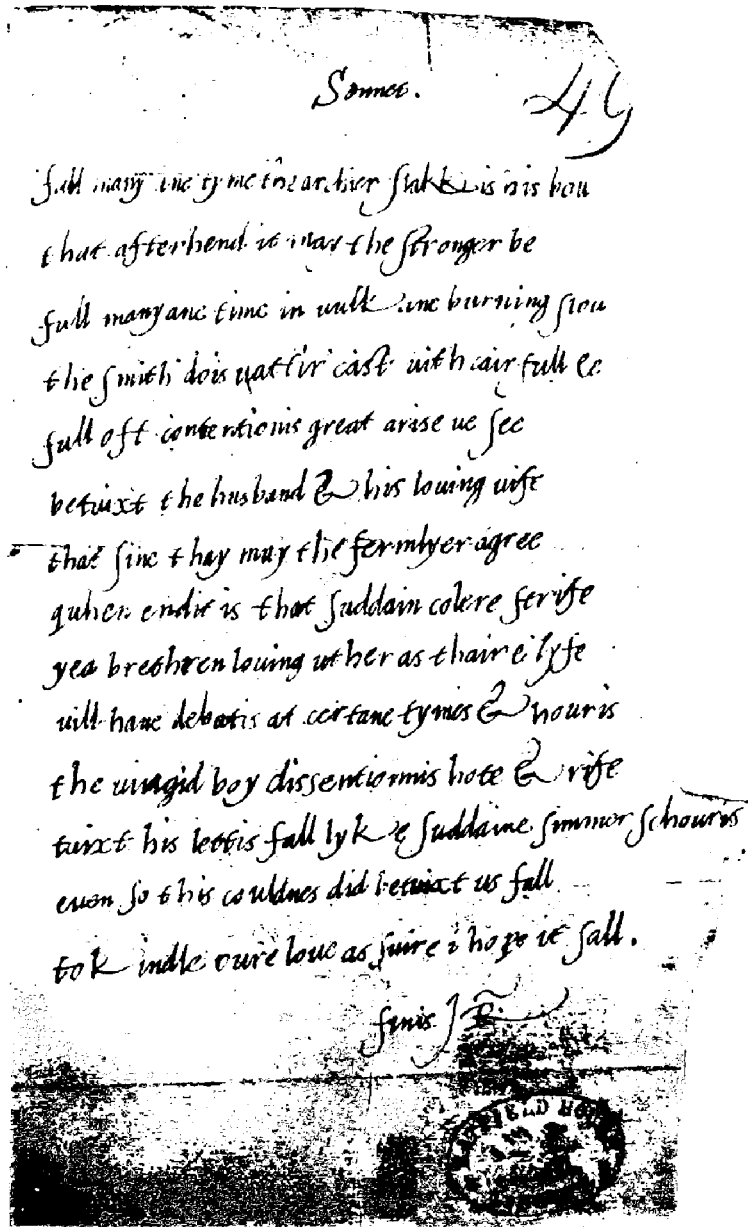 Sonnet.
49
full many ane tyme the archier slakkis his bou
that afterhend it may the stronger be
full many ane time in vulkane burning stou
the smith dois vattir cast with cairfull ee
full oft contentionis great arise ue see
betuixt the husband & his loving uife
that sine thay may the fermlyer agree
quhen endit is that suddain colere strife
yea brethren loving uther as thaire lyfe
uill have debatis at certane tymes & houris
the uingid boy dissentionis hote & rife
tuixt his lettis fall lyke suddaine simmer schouris
even so this couldnes did betuixt us fall
to kindle oure love as suire i hope it sall.
finis J R
HATFIELD HOUSE